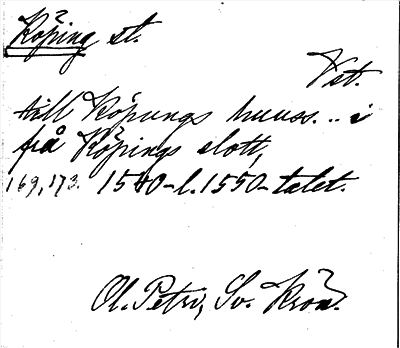 Köping st.
Vst.
till Köpungs huuss... i
från Köpings slott,
169, 173. 1540-l. 1550-talet.
Ol. Petri, Sv. Krön.